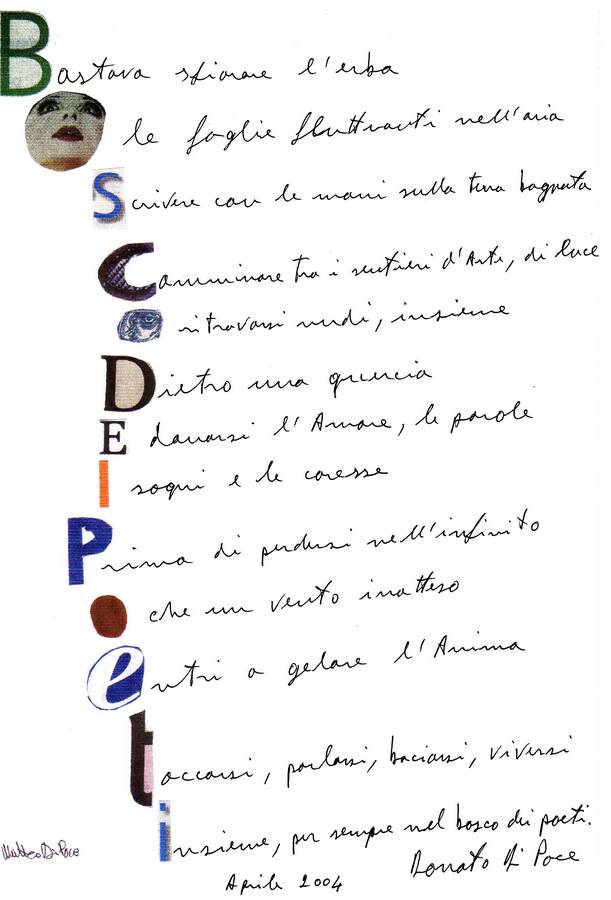 Bastava sfiorare l'erba
O le foglie fluttuanti nell'aria
Scrivere con le mani sulla terra bagnata
Camminare tra i sentieri d'Arte, di luce
O ritrovarsi nudi, insieme
Dietro una quercia
E donarsi l'Amore, le parole
I sogni e le caresse
Prima di perdersi nell'infinito
O che un vento inatteso
entri a gelare l'Anima
toccarsi, parlarsi, baciarsi, viversi
insieme, per sempre nel bosco dei poeti.
Matteo Di Pace
Donato Di Pace
Aprile 2004